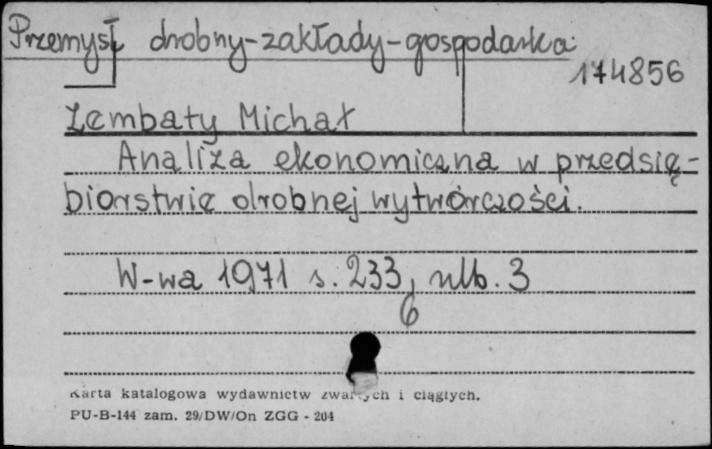 Przemysł drobny-zakłady-gospodarka
174856
Zembaty Michał
Analiza ekonomiczna w przedsię-
biorstwie drobnej wytwórczości.
W-wa 1971 s. 233, nlb. 3
6
Karta katalogowa wydawnictw zwartych i ciągłych.
PU-B-144 zam. 29/DW/On ZGG - 204